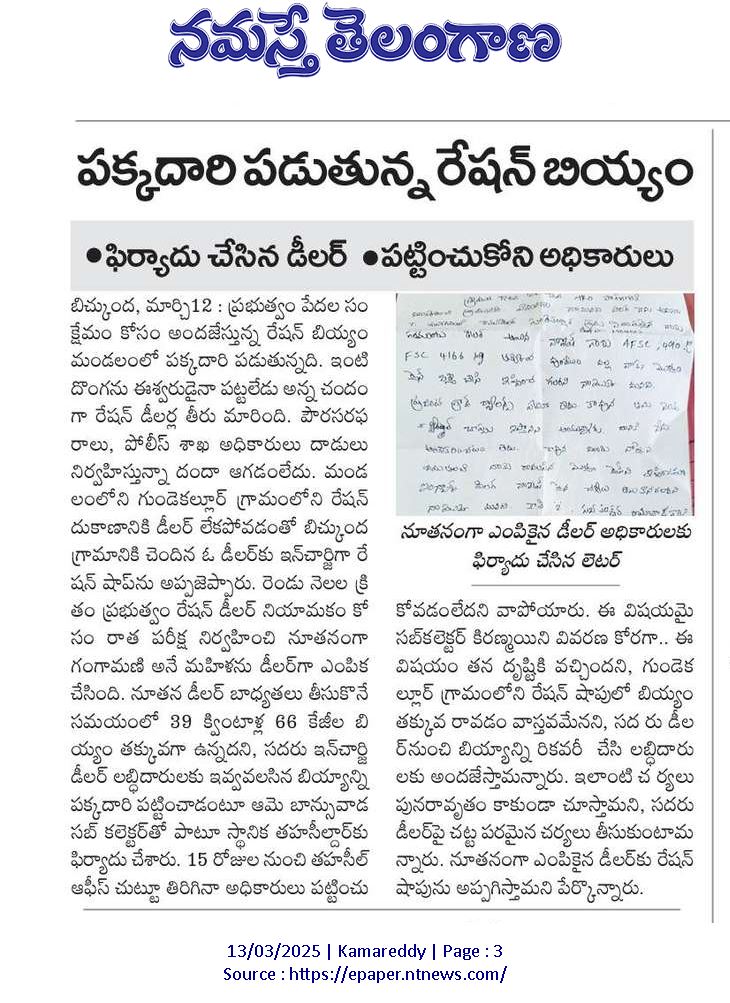 నమస్తే తెలంగాణ
పక్కదారి పడుతున్న రేషన్ బియ్యం
•ఫిర్యాదు చేసిన డీలర్ •పట్టించుకోని అధికారులు
బిచ్కుంద, మార్చి12 : ప్రభుత్వం పేదల సం
క్షేమం కోసం అందజేస్తున్న రేషన్ బియ్యం
మండలంలో పక్కదారి పడుతున్నది. ఇంటి
దొంగను ఈశ్వరుడైనా పట్టలేడు అన్న చందం
గా రేషన్ డీలర్ల తీరు మారింది. పౌరసరఫ
రాలు, పోలీస్ శాఖ అధికారులు దాడులు
నిర్వహిస్తున్నా దందా ఆగడంలేదు. మండ
లంలోని గుండెకల్లూర్ గ్రామంలోని రేషన్
దుకాణానికి డీలర్ లేకపోవడంతో బిచ్కుంద
గ్రామానికి చెందిన ఓ డీలర్‌కు ఇన్‌చార్జిగా రే
షన్ షాప్‌ను అప్పజెప్పారు. రెండు నెలల క్రి
తం ప్రభుత్వం రేషన్ డీలర్ నియామకం కో
సం రాత పరీక్ష నిర్వహించి నూతనంగా
గంగామణి అనే మహిళను డీలర్‌గా ఎంపిక
చేసింది. నూతన డీలర్ బాధ్యతలు తీసుకొనే
సమయంలో 39 క్వింటాళ్ల 66 కేజీల బి
య్యం తక్కువగా ఉన్నదని, సదరు ఇన్‌చార్జి
డీలర్ లబ్ధిదారులకు ఇవ్వవలసిన బియ్యాన్ని
పక్కదారి పట్టించాడంటూ ఆమె బాన్సువాడ
సబ్ కలెక్టర్‌తో పాటూ స్థానిక తహసీల్దార్‌కు
ఫిర్యాదు చేశారు. 15 రోజుల నుంచి తహసీల్
ఆఫీస్ చుట్టూ తిరిగినా అధికారులు పట్టించు
AFSC
FSC 4166
నూతనంగా ఎంపికైన డీలర్ అధికారులకు
ఫిర్యాదు చేసిన లెటర్
కోవడంలేదని వాపోయారు. ఈ విషయమై
సబ్‌కలెక్టర్ కిరణ్మయిని వివరణ కోరగా.. ఈ
విషయం తన దృష్టికి వచ్చిందని, గుండెక
ల్లూర్ గ్రామంలోని రేషన్ షాపులో బియ్యం
తక్కువ రావడం వాస్తవమేనని, సద రు డీల
ర్‌నుంచి బియ్యాన్ని రికవరీ చేసి లబ్ధిదారు
లకు అందజేస్తామన్నారు. ఇలాంటి చ ర్యలు
పునరావృతం కాకుండా చూస్తామని, సదరు
డీలర్‌పై చట్ట పరమైన చర్యలు తీసుకుంటామ
న్నారు. నూతనంగా ఎంపికైన డీలర్‌కు రేషన్
షాపును అప్పగిస్తామని పేర్కొన్నారు.
13/03/2025 | Kamareddy | Page : 3
Source : https://epaper.ntnews.com/